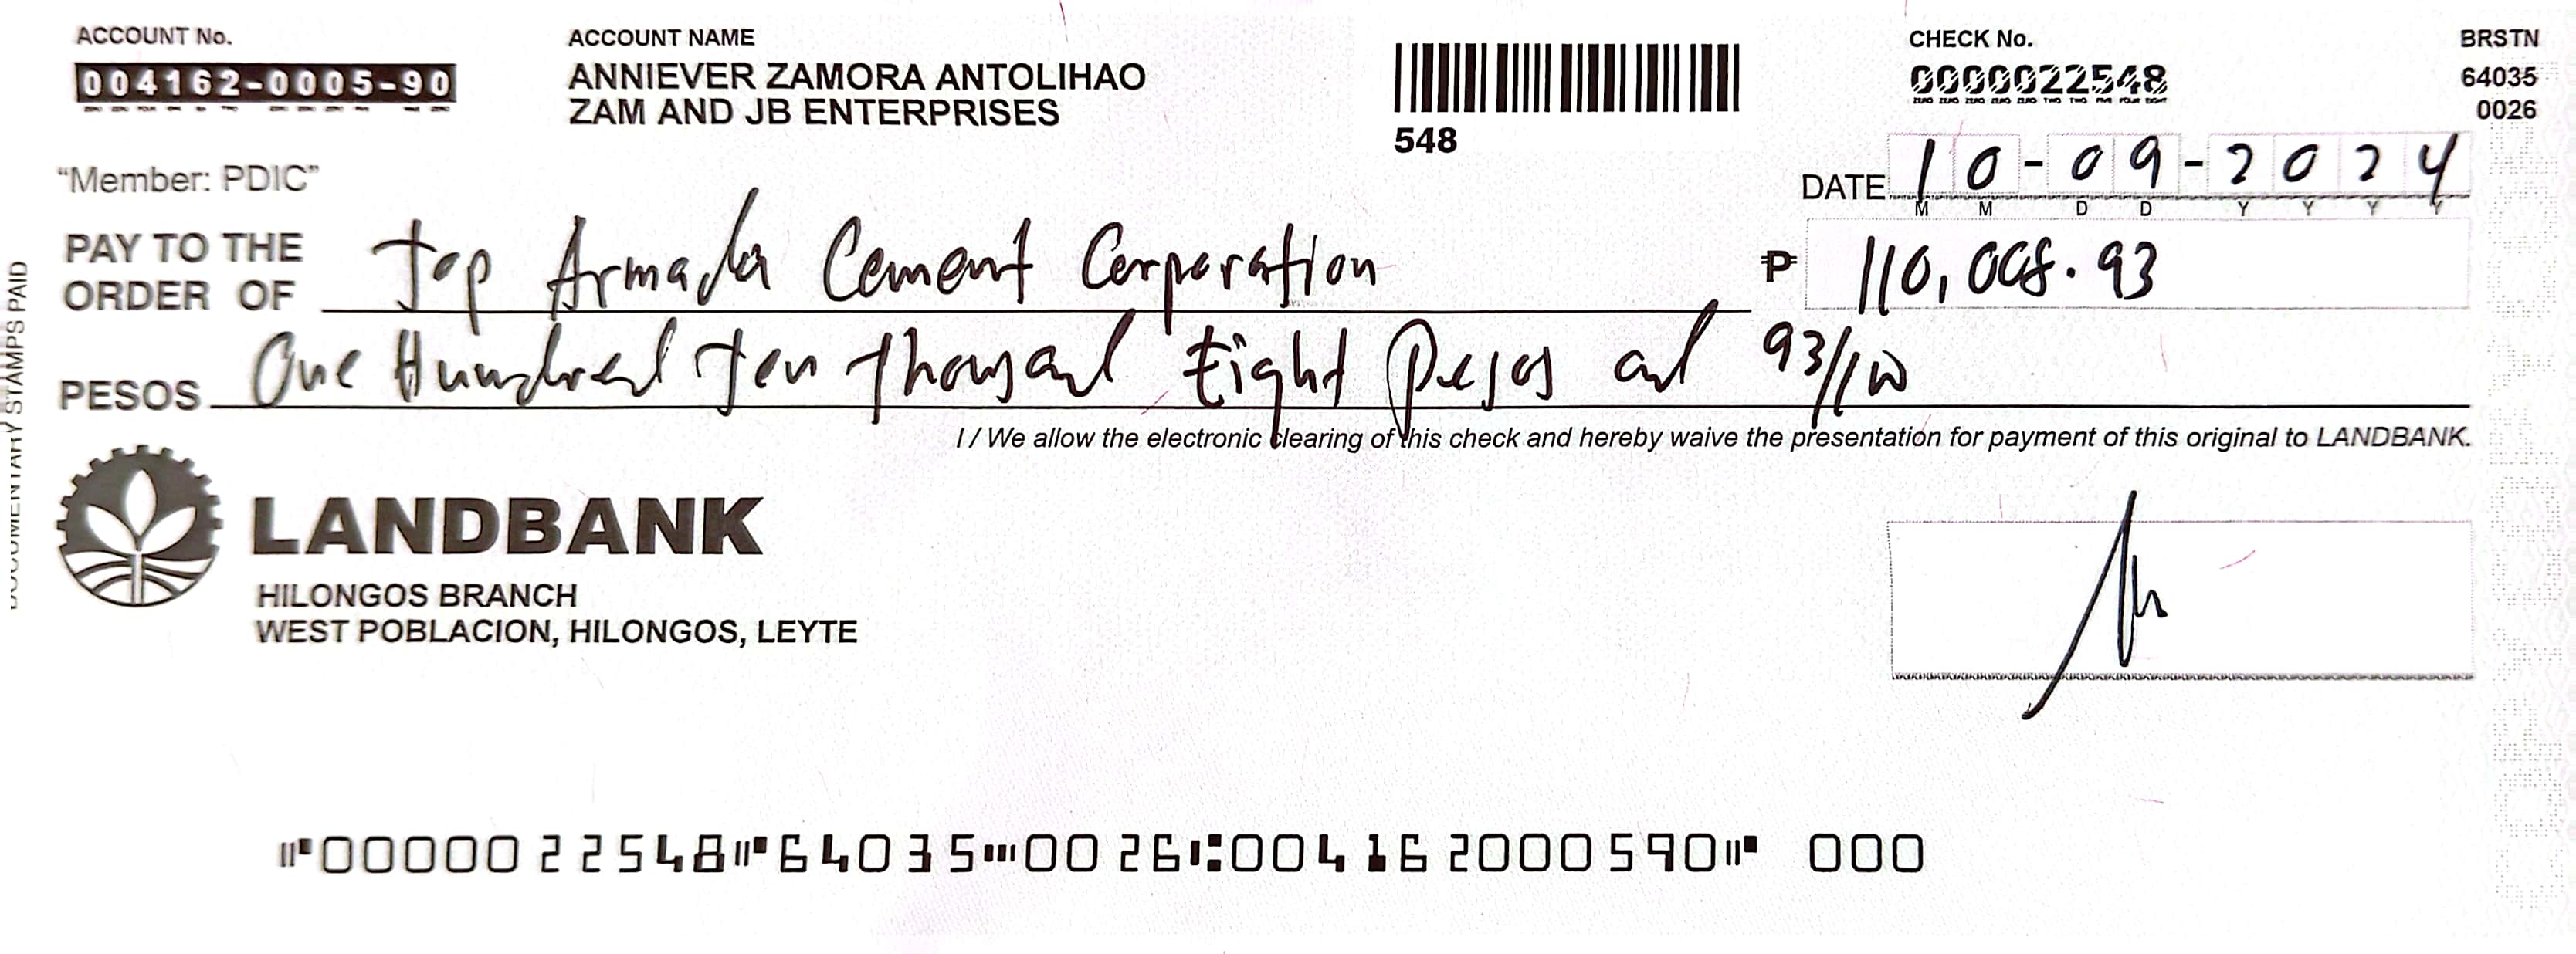 ACCOUNT No.
004162-0005-90
ACCOUNT NAME
ANNIEVER ZAMORA ANTOLIHAO
ZAM AND JB ENTERPRISES
548
CHECK No.
0000022548
ZERO ZERO ZERO ZERO ZERO TWO TWO FIVE FOUR EIGHT
BRSTN
64035
0026
"Member: PDIC"
DATE 10-09-2024
M M D D Y Y Y Y
PAY TO THE
ORDER OF Top Armada Cement Corporation
₱ 110,008.93
PESOS One Hundred Ten Thousand Eight Pesos and 93/100
I / We allow the electronic clearing of this check and hereby waive the presentation for payment of this original to LANDBANK.
DOCUMENTARY STAMPS PAID
LANDBANK
HILONGOS BRANCH
WEST POBLACION, HILONGOS, LEYTE
⑈0000022548⑈64035⑉0026⑆004162000590⑈ 000